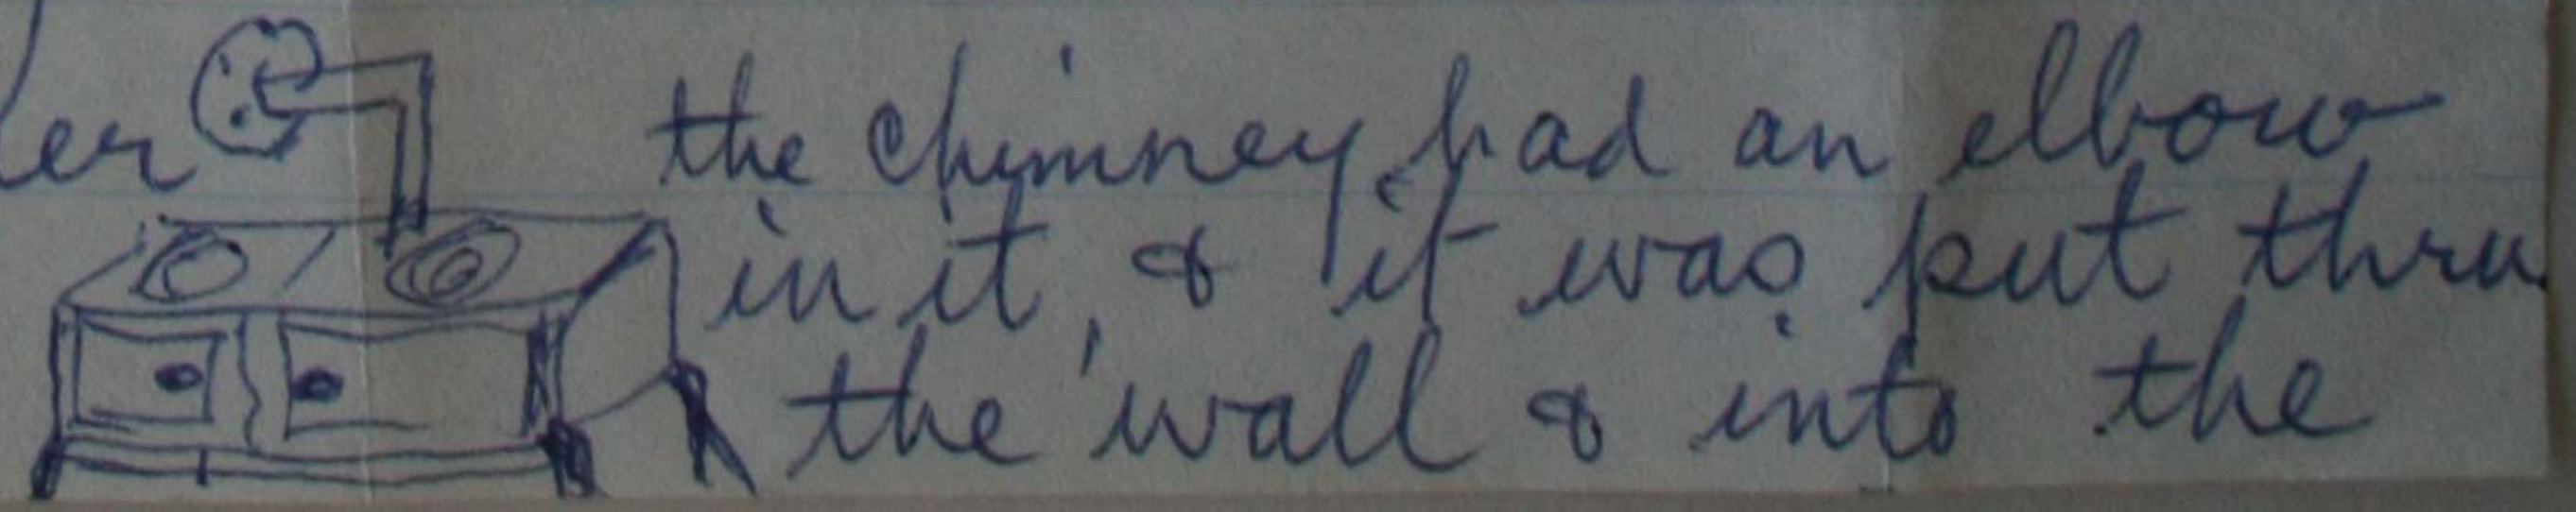 the chimney had an elbow
in it, & it was put thru
the wall & into the